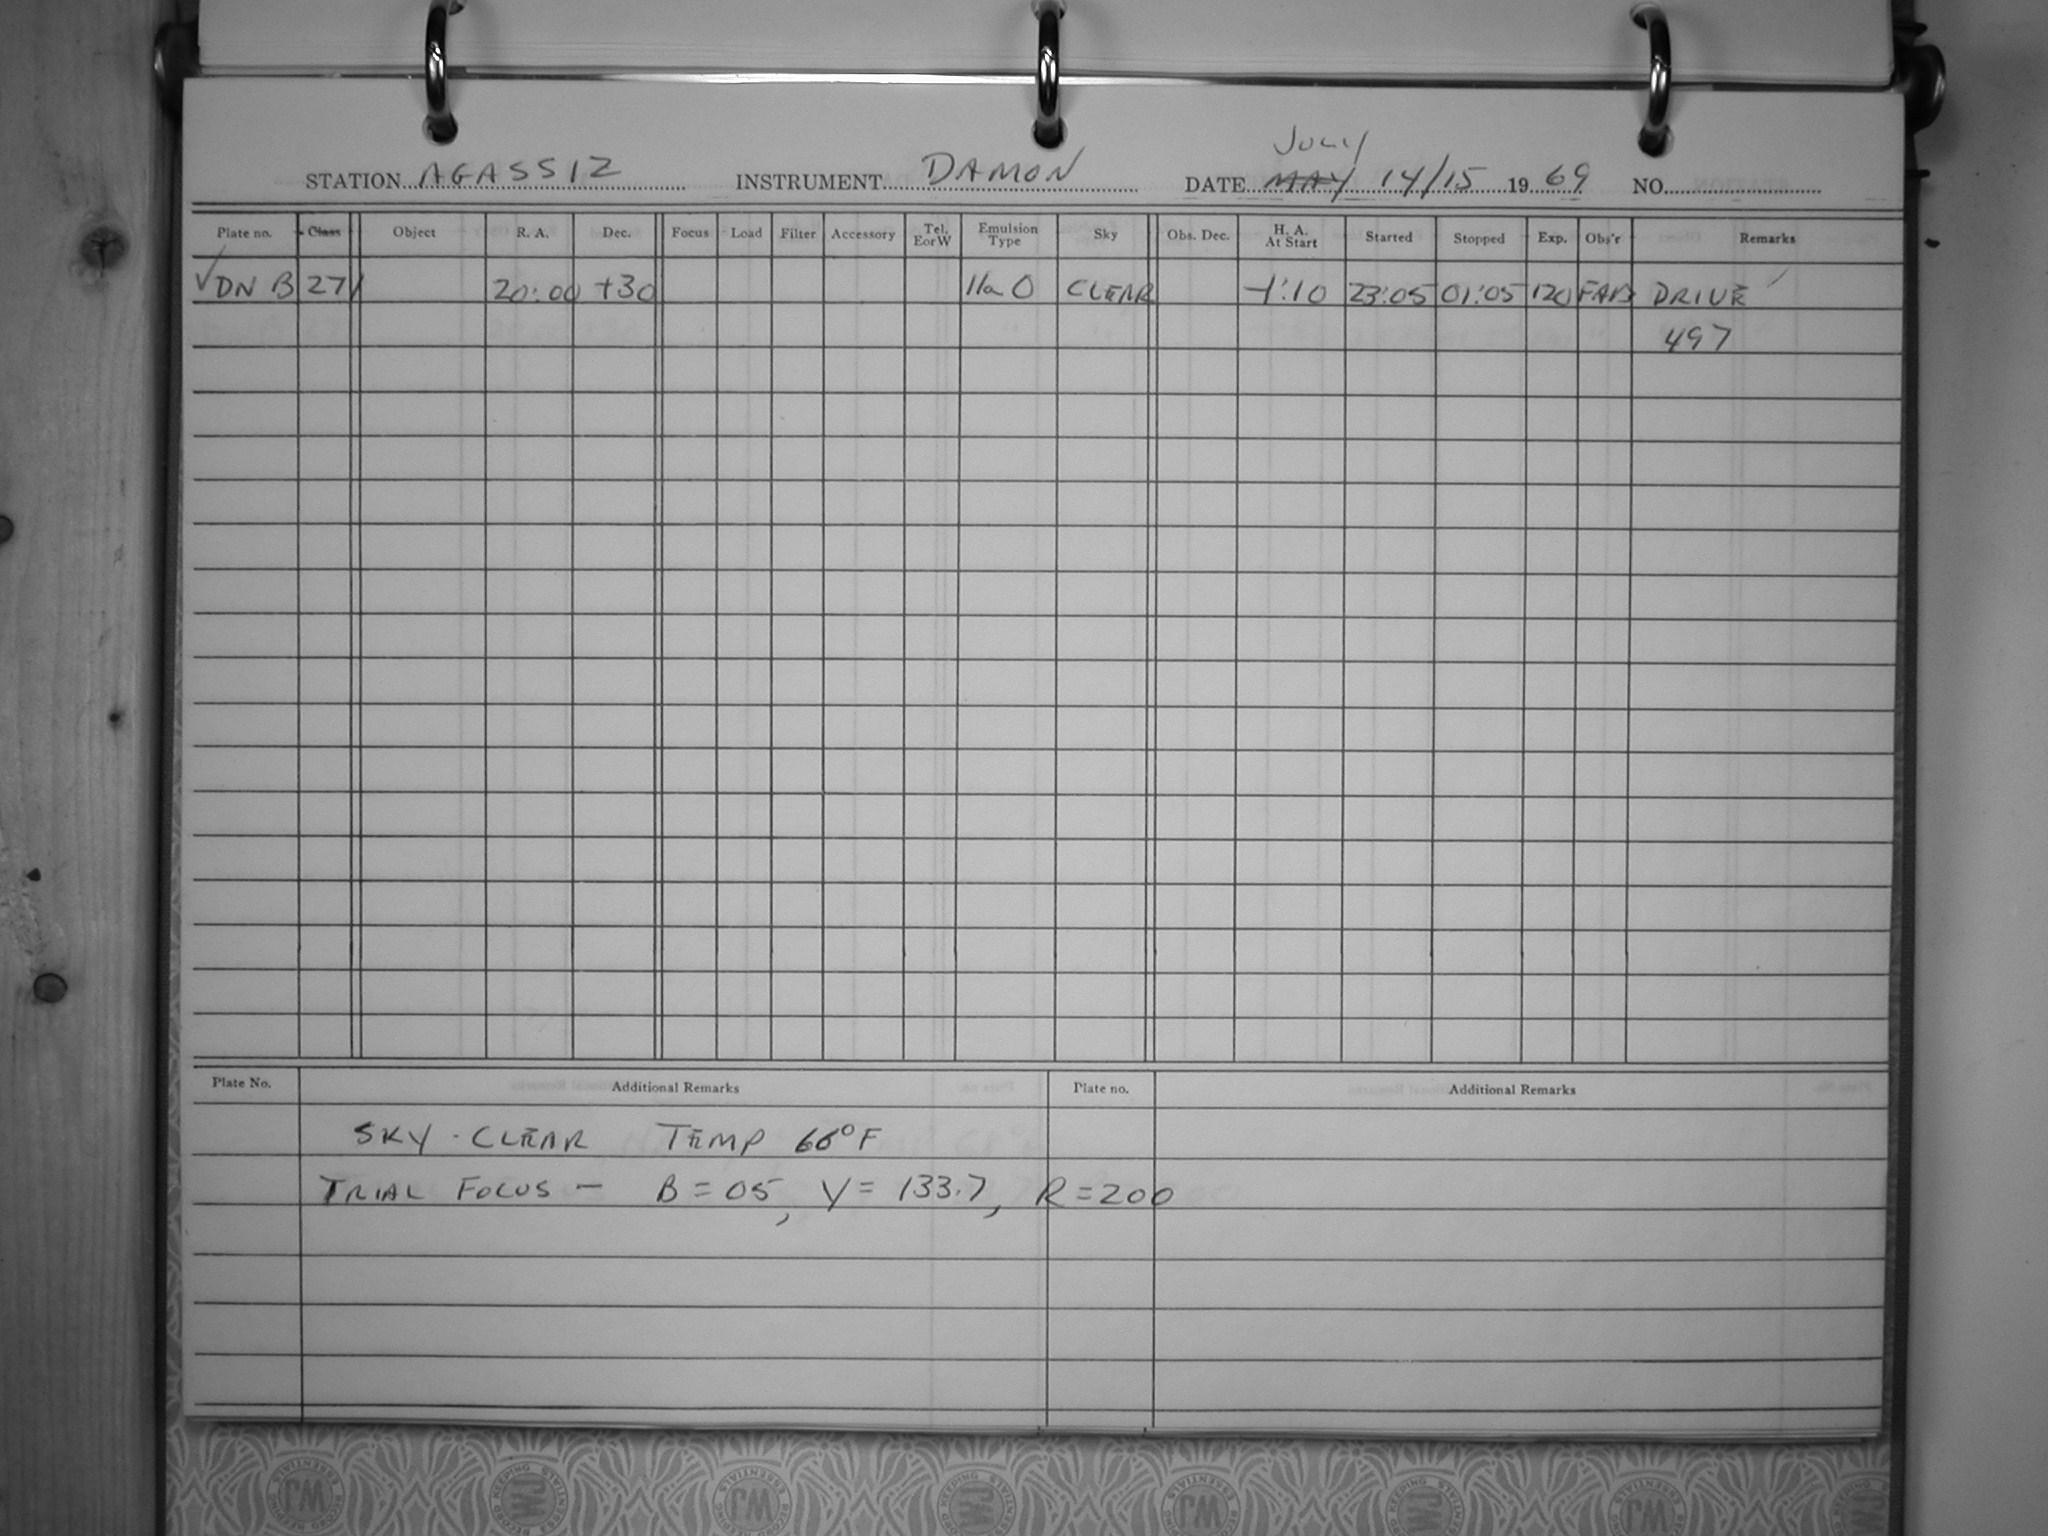 JULY
STATION AGASSIZ INSTRUMENT DAMON DATE MAY 14/15 1969 NO.
Plate no. Class Object R. A. Dec. Focus Load Filter Accessory Tel. EorW Emulsion Type Sky Obs. Dec. H. A. At Start Started Stopped Exp. Obs'r Remarks
✓DN B 271 20:00 +30 IIa O CLEAR -1:10 23:05 01:05 120 DRIVE
497
Plate No. Additional Remarks Plate no. Additional Remarks
SKY - CLEAR TEMP 66°F
TRIAL FOCUS - B = 05, Y = 133.7, R = 200
WJ RECORD KEEPING ESSENTIALS